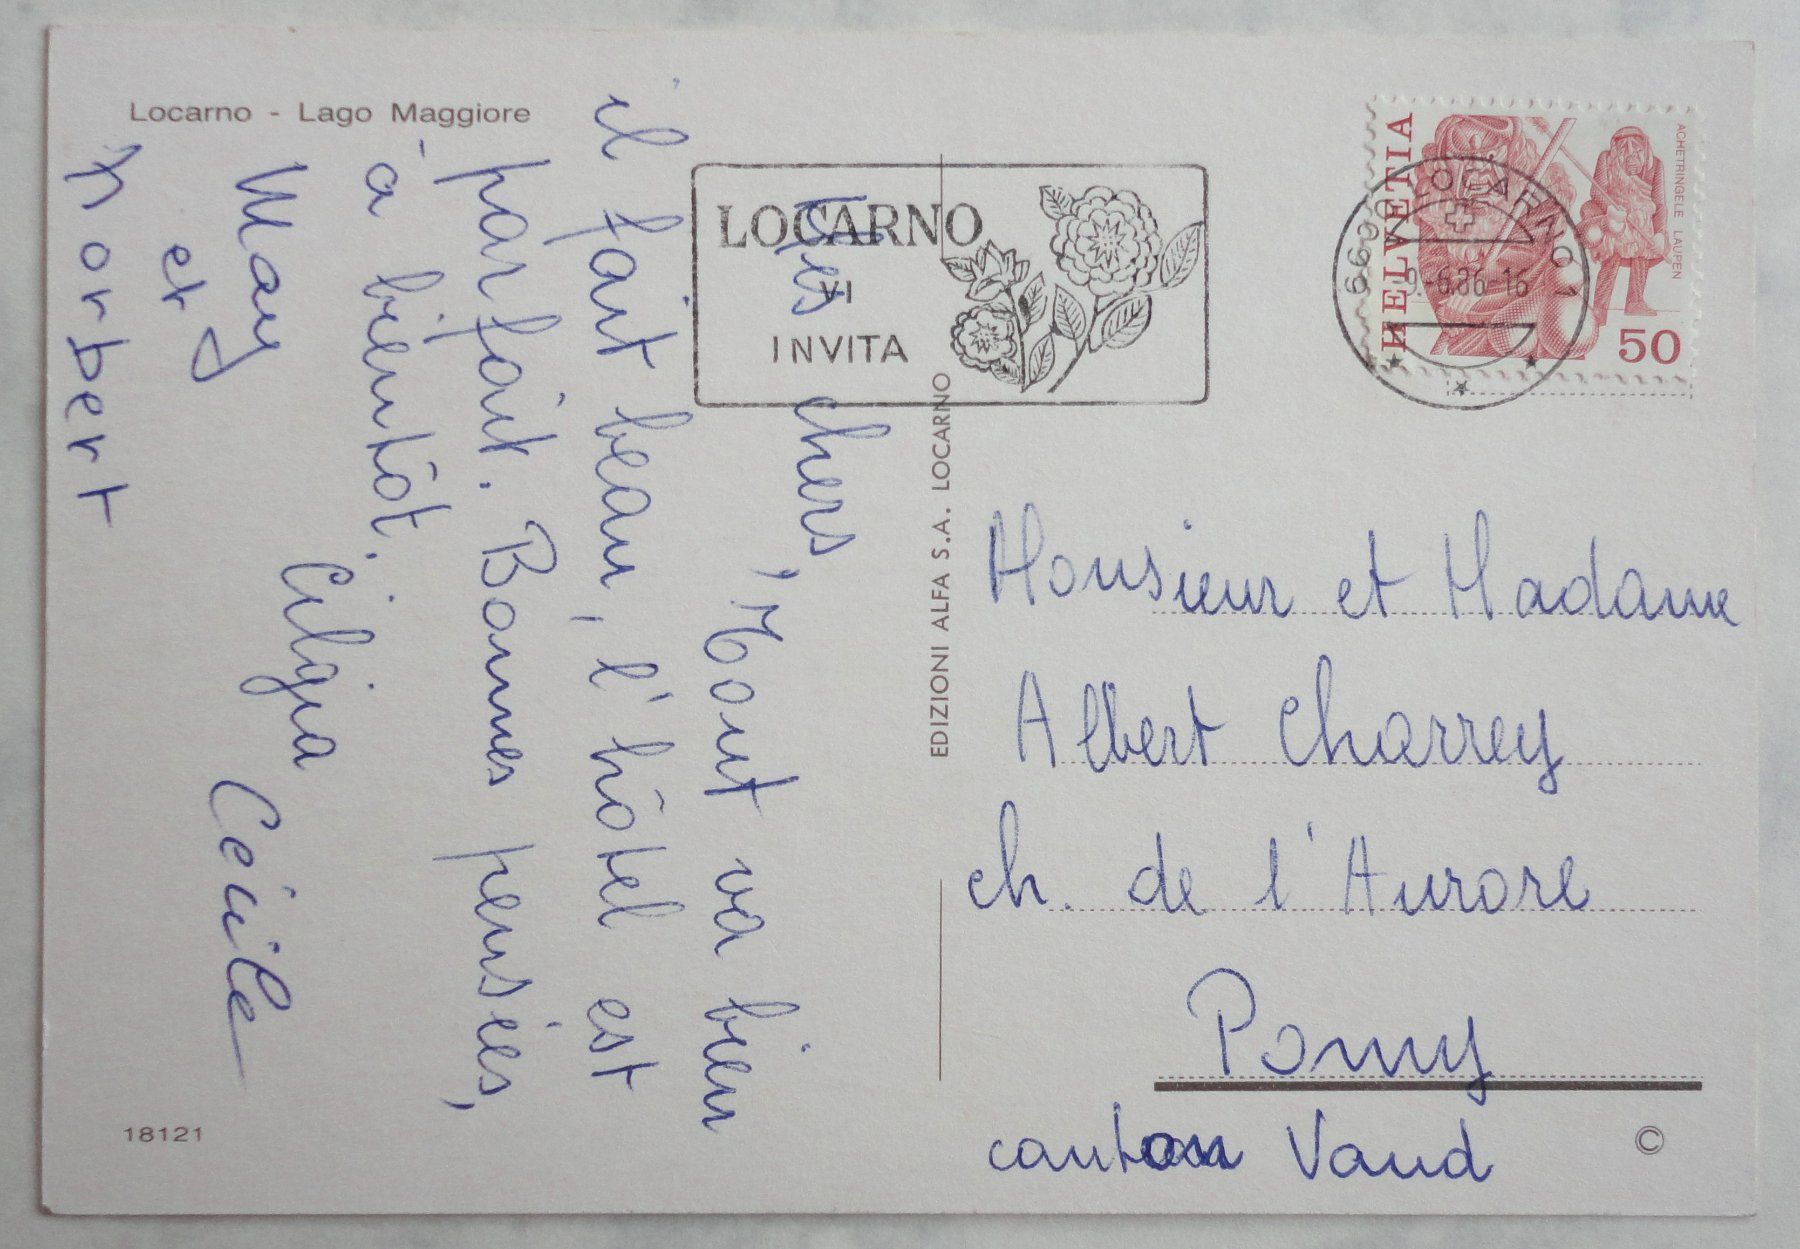 Locarno - Lago Maggiore
LOCARNO
VI
INVITA
6600 LOCARNO 1
9.-6.86-16
HELVETIA
ACHETRINGELE LAUPEN
50
chers,
Tout va bien
il fait beau, l'hôtel est
parfait. Bonnes pensées,
à bientôt.
Cilgia Cécile
May
et
Norbert
EDIZIONI ALFA S.A. LOCARNO
Monsieur et Madame
Albert Charrey
ch. de l'Aurore
Pomy
canton Vaud
18121
©